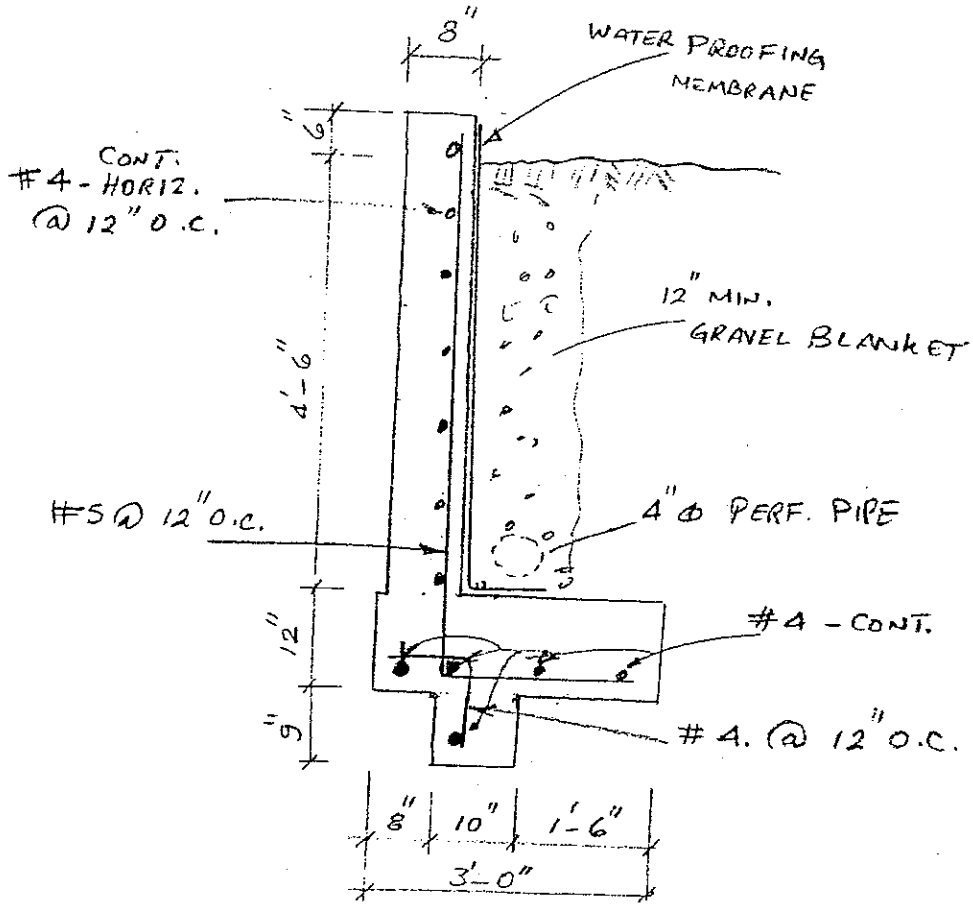 8"
WATER PROOFING
MEMBRANE
6"
CONT.
#4 - HORIZ.
@ 12" O.C.
12" MIN.
GRAVEL BLANKET
4'-6"
#5 @ 12" O.C.
4" Φ PERF. PIPE
12"
#4 - CONT.
9"
#4. @ 12" O.C.
8"
10"
1'-6"
3'-0"